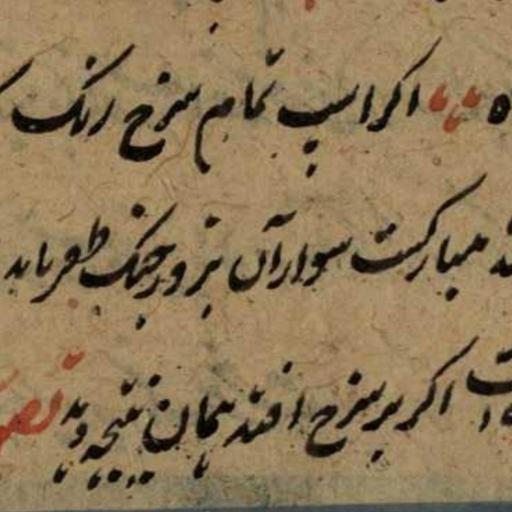 ه اگر اسپ تمام سرخ رنگ
مبارکست سوار آن بزودی جنگ ظفر یابد
ت اگر بر سرخ افتد همان نتیجه دهد